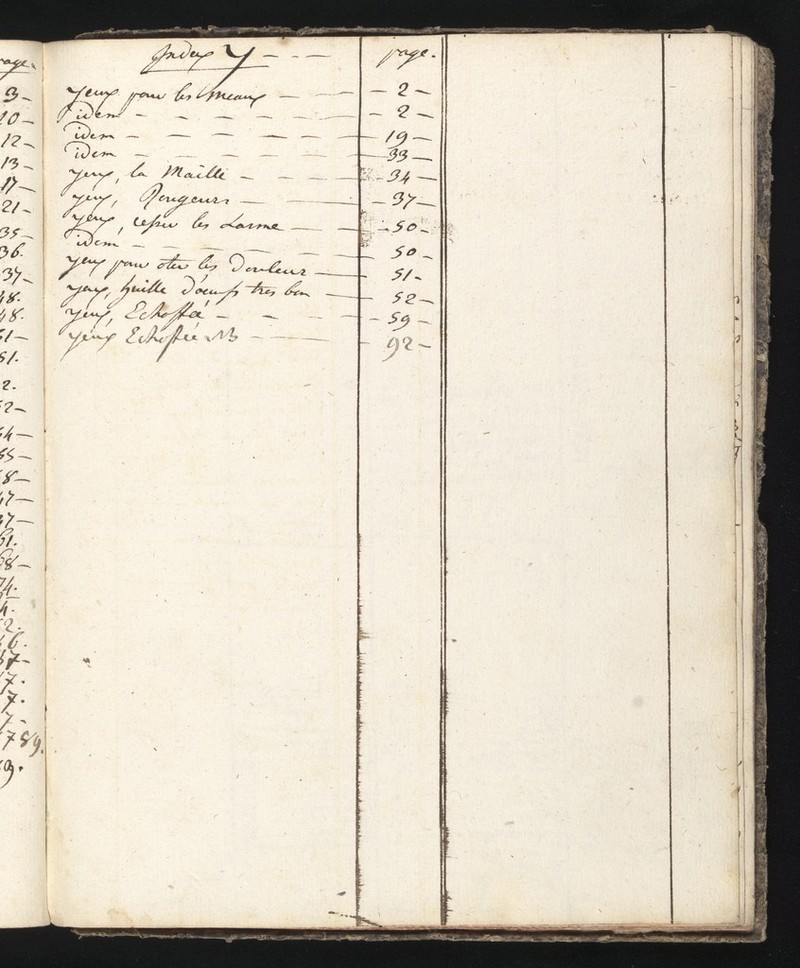 page.
3-
10-
12-
13-
17-
21-
35-
36.
37-
48.
48.
51-
51.
2.
52-
54-
55-
58-
47-
37-
61.
68-
74.
4.
2.
66.
67-
7.
7.
7-
789.
Index Y - - - page.
yeux pour les meaux - - - 2 -
idem - - - - - - - 2 -
idem - - - - - - 19 -
idem - - - - - - 33 -
yeux, la Maille - - - - 34 -
yeux, Rougeurs - - - 37 -
yeux, cesser les Larme - - - 50 -
idem - - - - - - 50 -
yeux pour oter les Douleur - 51 -
yeux, huille d'oeufs tres bon - 52 -
yeux, Echoffée - - - - 59 -
yeux Echoffée NB - - - 92 -